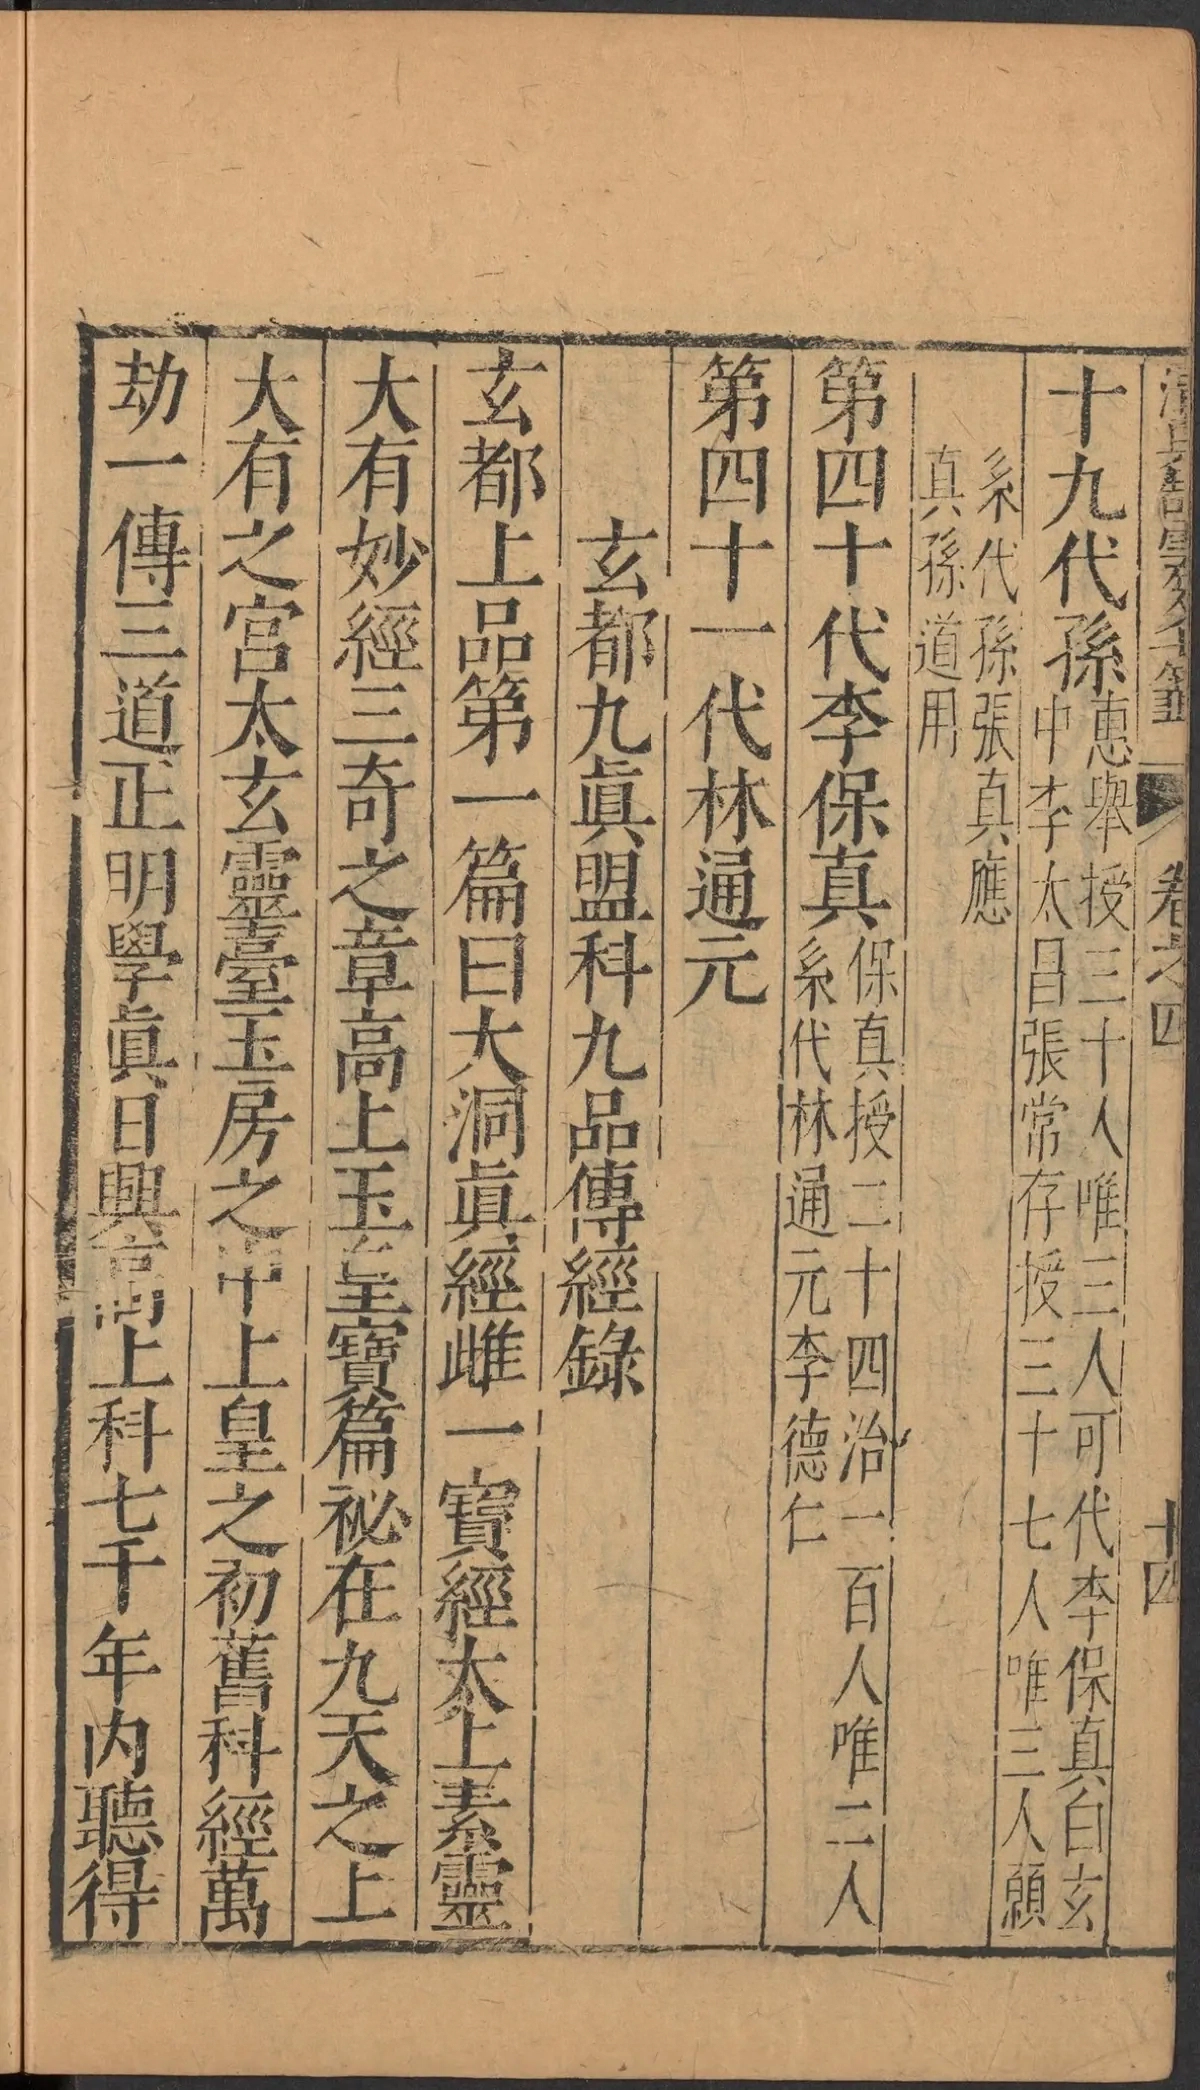 卷之四
十四
十九代孫惠舉授三十人唯三人可代李保真白玄
中李太昌張常存授三十七人唯三人願
系代孫張真應
真孫道用
第四十代李保真保真授二十四治一百人唯二人
系代林通元李德仁
第四十一代林通元
玄都九眞盟科九品傳經錄
玄都上品第一篇曰大洞眞經雌一寶經太上素靈
大有妙經三奇之章高上玉皇寶篇祕在九天之上
大有之宮太玄靈臺玉房之中上皇之初舊科經萬
劫一傳三道正明學眞日興高上科七千年內聽得